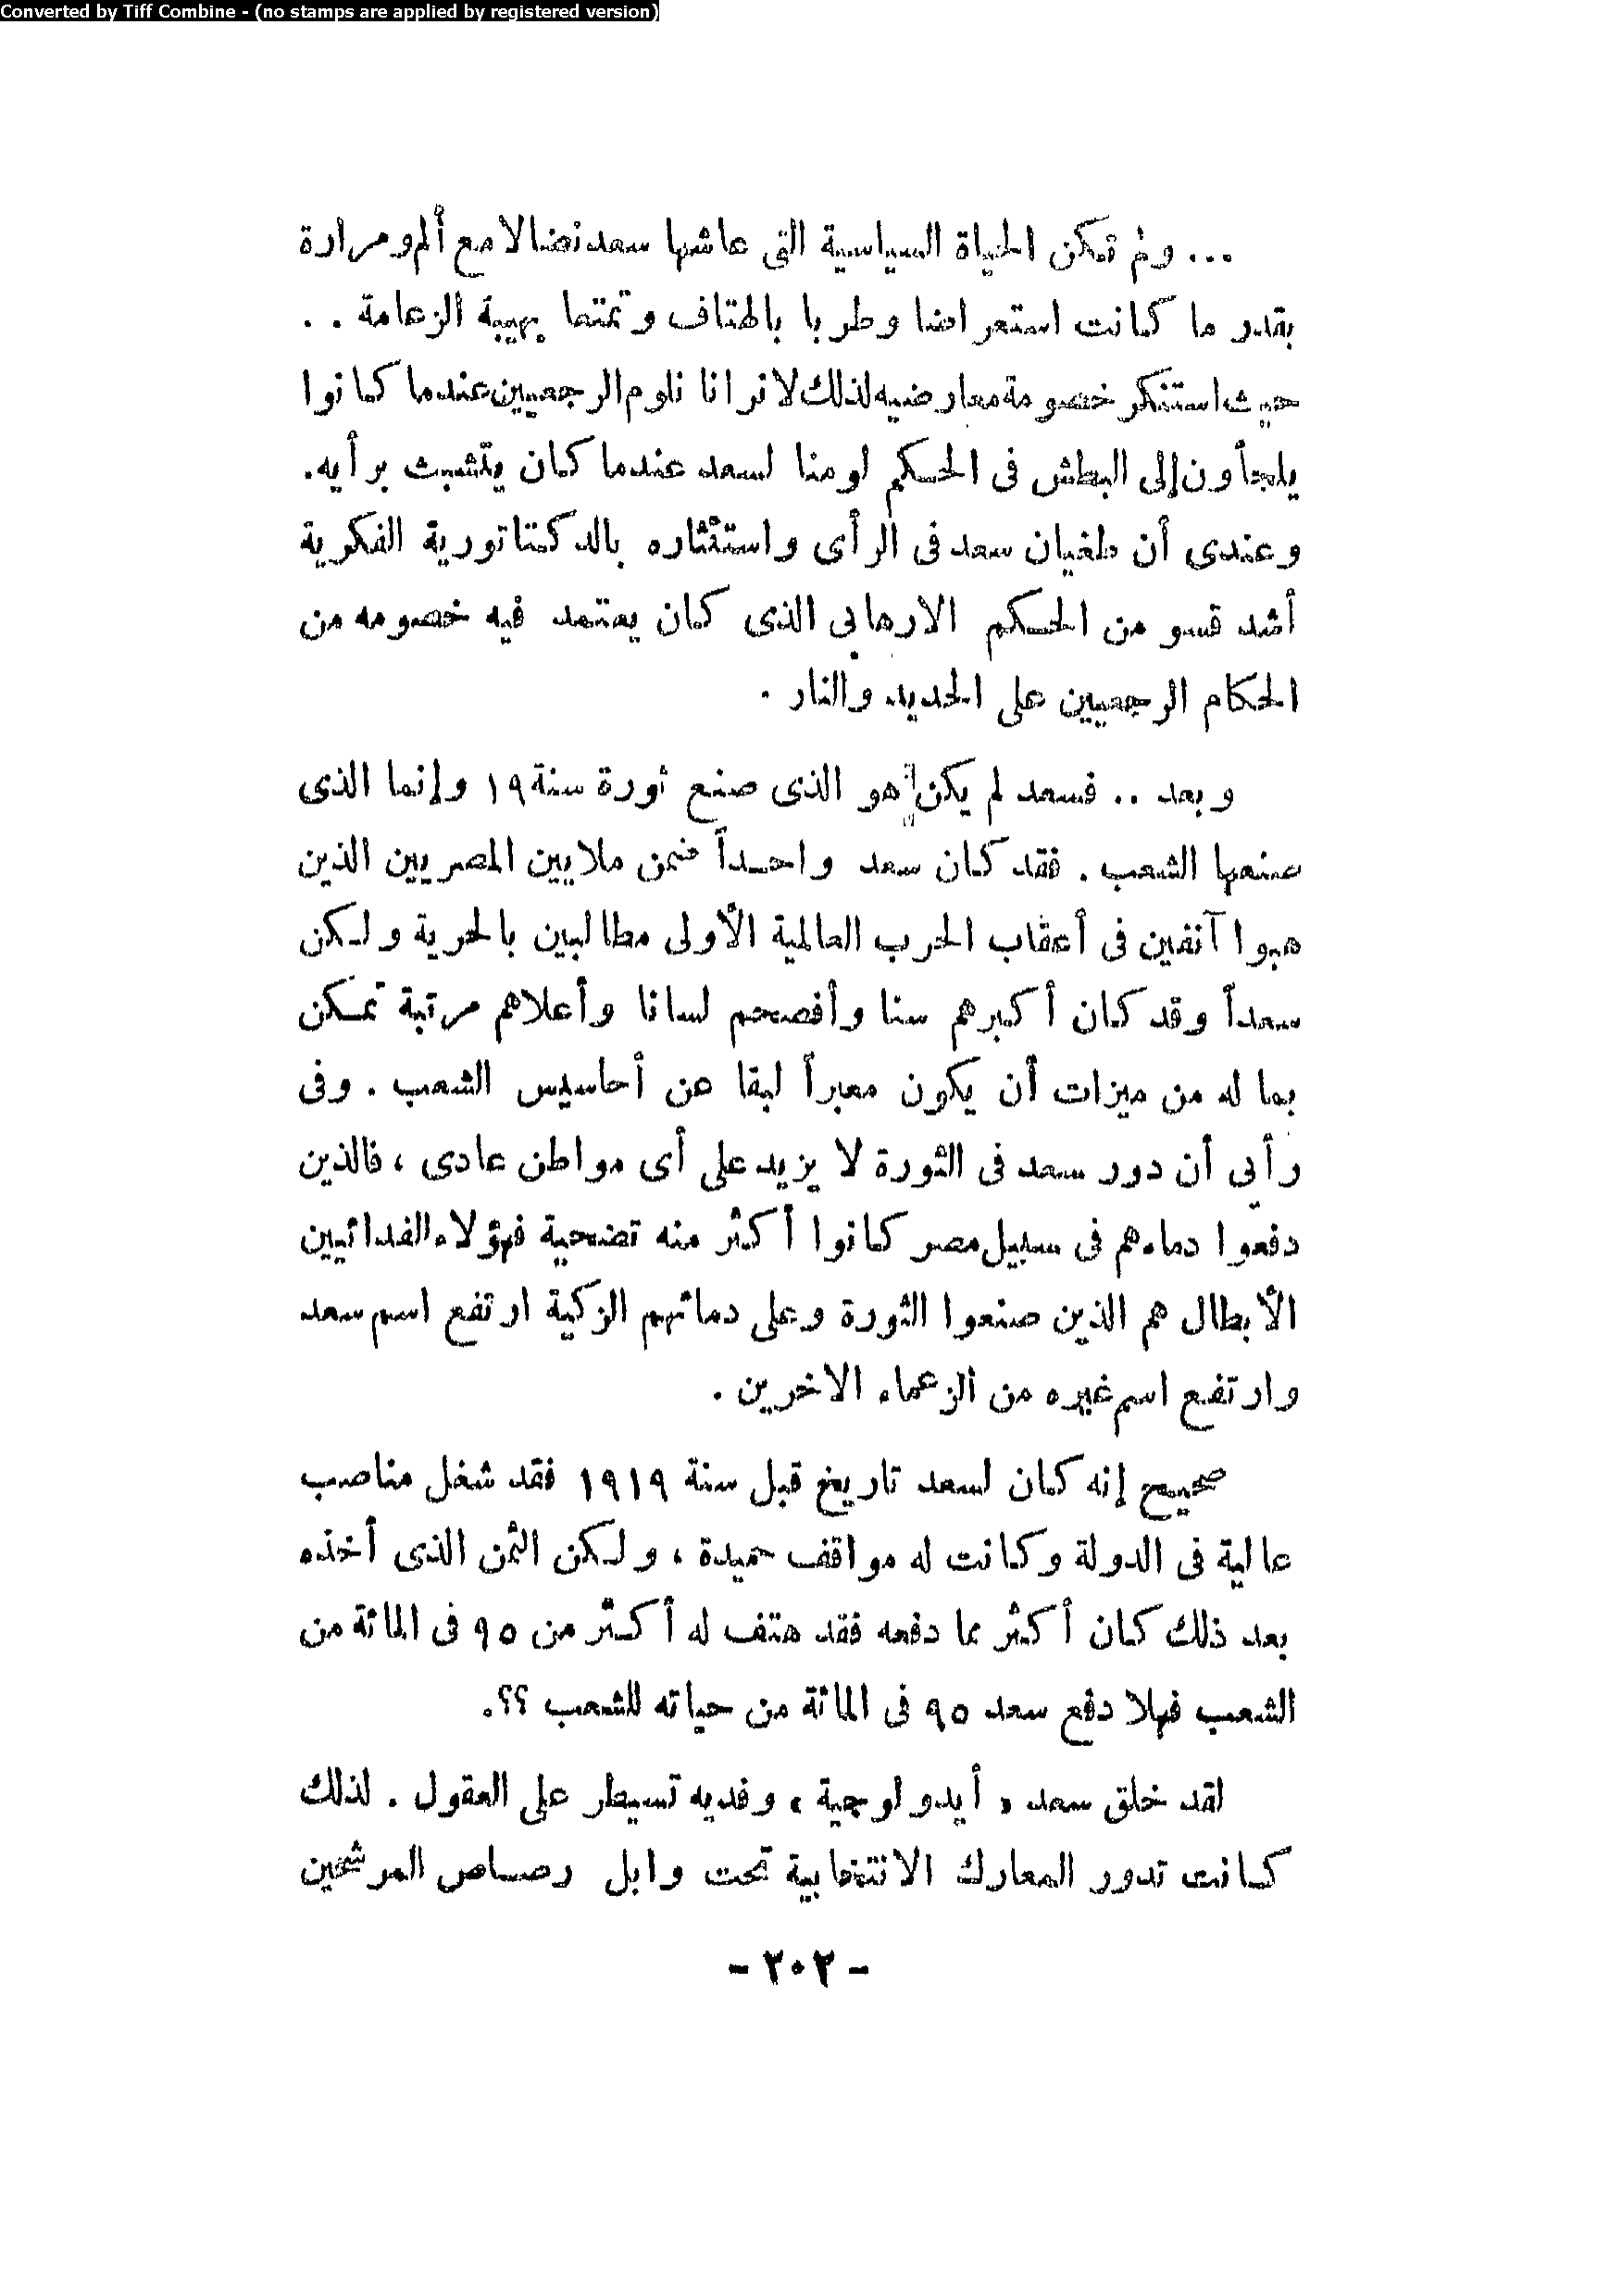 Converted by Tiff Combine - (no stamps are applied by registered version)
... ولم تكن الحياة السياسية التى عاشها سعد نضالا مع ألم ومرارة
بقدر ما كانت استعراضا وطربا بالهتاف وتمتعا بهيبة الزعامة . .
حيث استنكر خصومة معارضيه لذلك لا نرانا نلوم الرجعيين عندما كانوا
يلجأون إلى البطش فى الحكم لومنا لسعد عندما كان يتشبث برأيه .
وعندى أن طغيان سعد فى الرأى واستئثاره بالدكتاتورية الفكرية
أشد قسو من الحكم الارهابى الذى كان يعتمد فيه خصومه من
الحكام الرجعيين على الحديد والنار .
وبعد .. فسعد لم يكن هو الذى صنع ثورة سنة ١٩ وإنما الذى
صنعها الشعب . فقد كان سعد واحداً ضمن ملايين المصريين الذين
هبوا آنفين فى أعقاب الحرب العالمية الأولى مطالبين بالحرية ولكن
سعداً وقد كان أكبرهم سنا وأفصحهم لسانا وأعلاهم مرتبة تمكن
بما له من ميزات أن يكون معبراً لبقا عن أحاسيس الشعب . وفى
رأيى أن دور سعد فى الثورة لا يزيد على أى مواطن عادى ، فالذين
دفعوا دماءهم فى سبيل مصر كانوا أكثر منه تضحية فهؤلاء الفدائيين
الأبطال هم الذين صنعوا الثورة وعلى دمائهم الزكية ارتفع اسم سعد
وارتفع اسم غيره من الزعماء الاخرين .
صحيح إنه كان لسعد تاريخ قبل سنة ١٩١٩ فقد شغل مناصب
عالية فى الدولة وكانت له مواقف حميدة ، ولكن الثمن الذى أخذه
بعد ذلك كان أكثر مما دفعه فقد هتف له أكثر من ٩٥ فى المائة من
الشعب فهلا دفع سعد ٩٥ فى المائة من حياته للشعب ؟؟.
لقد خلق سعد « أيدولوجية » وفديه تسيطر على العقول . لذلك
كانت تدور المعارك الانتخابية تحت وابل رصاص المرشحين
- ٢٠٢ -